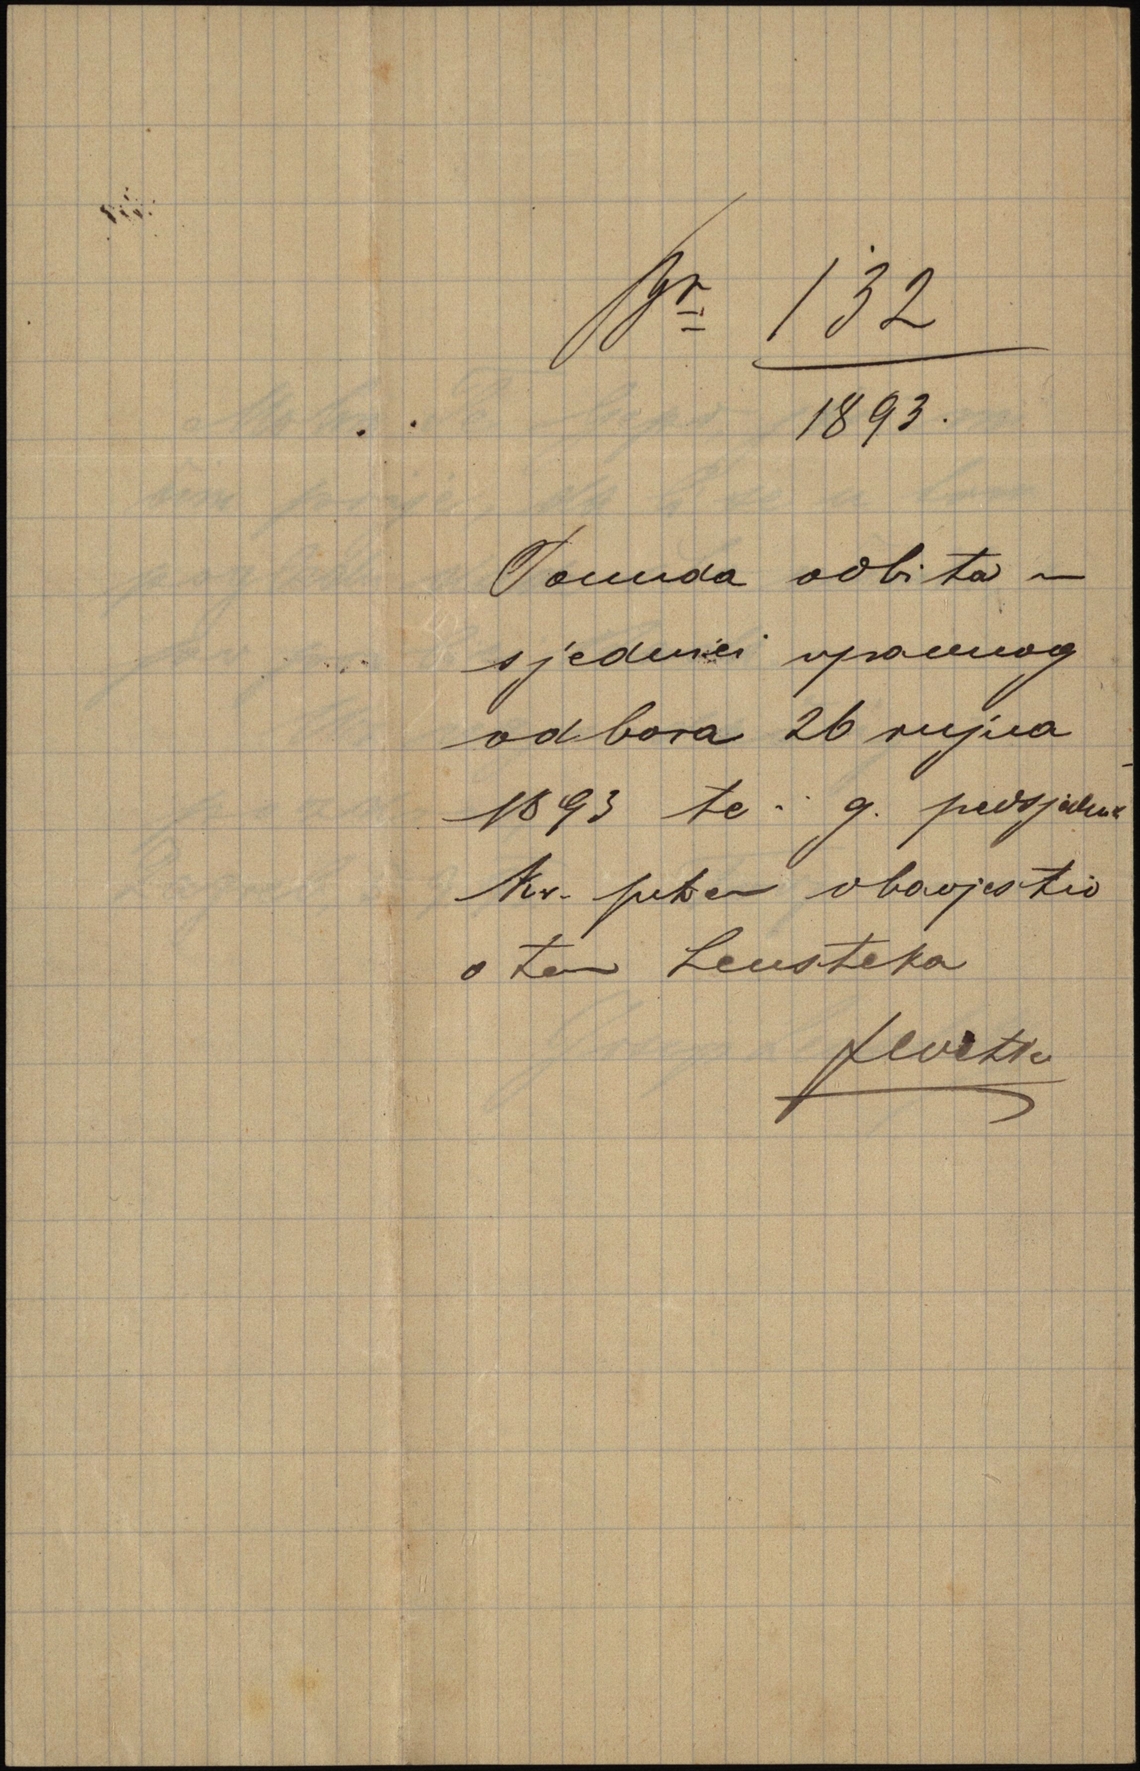 Br 132
1893.
Ponuda odbita u
sjednici upravnog
odbora 26 rujna
1893 te g. predsjednik
obavjestio
o tom Lensteka